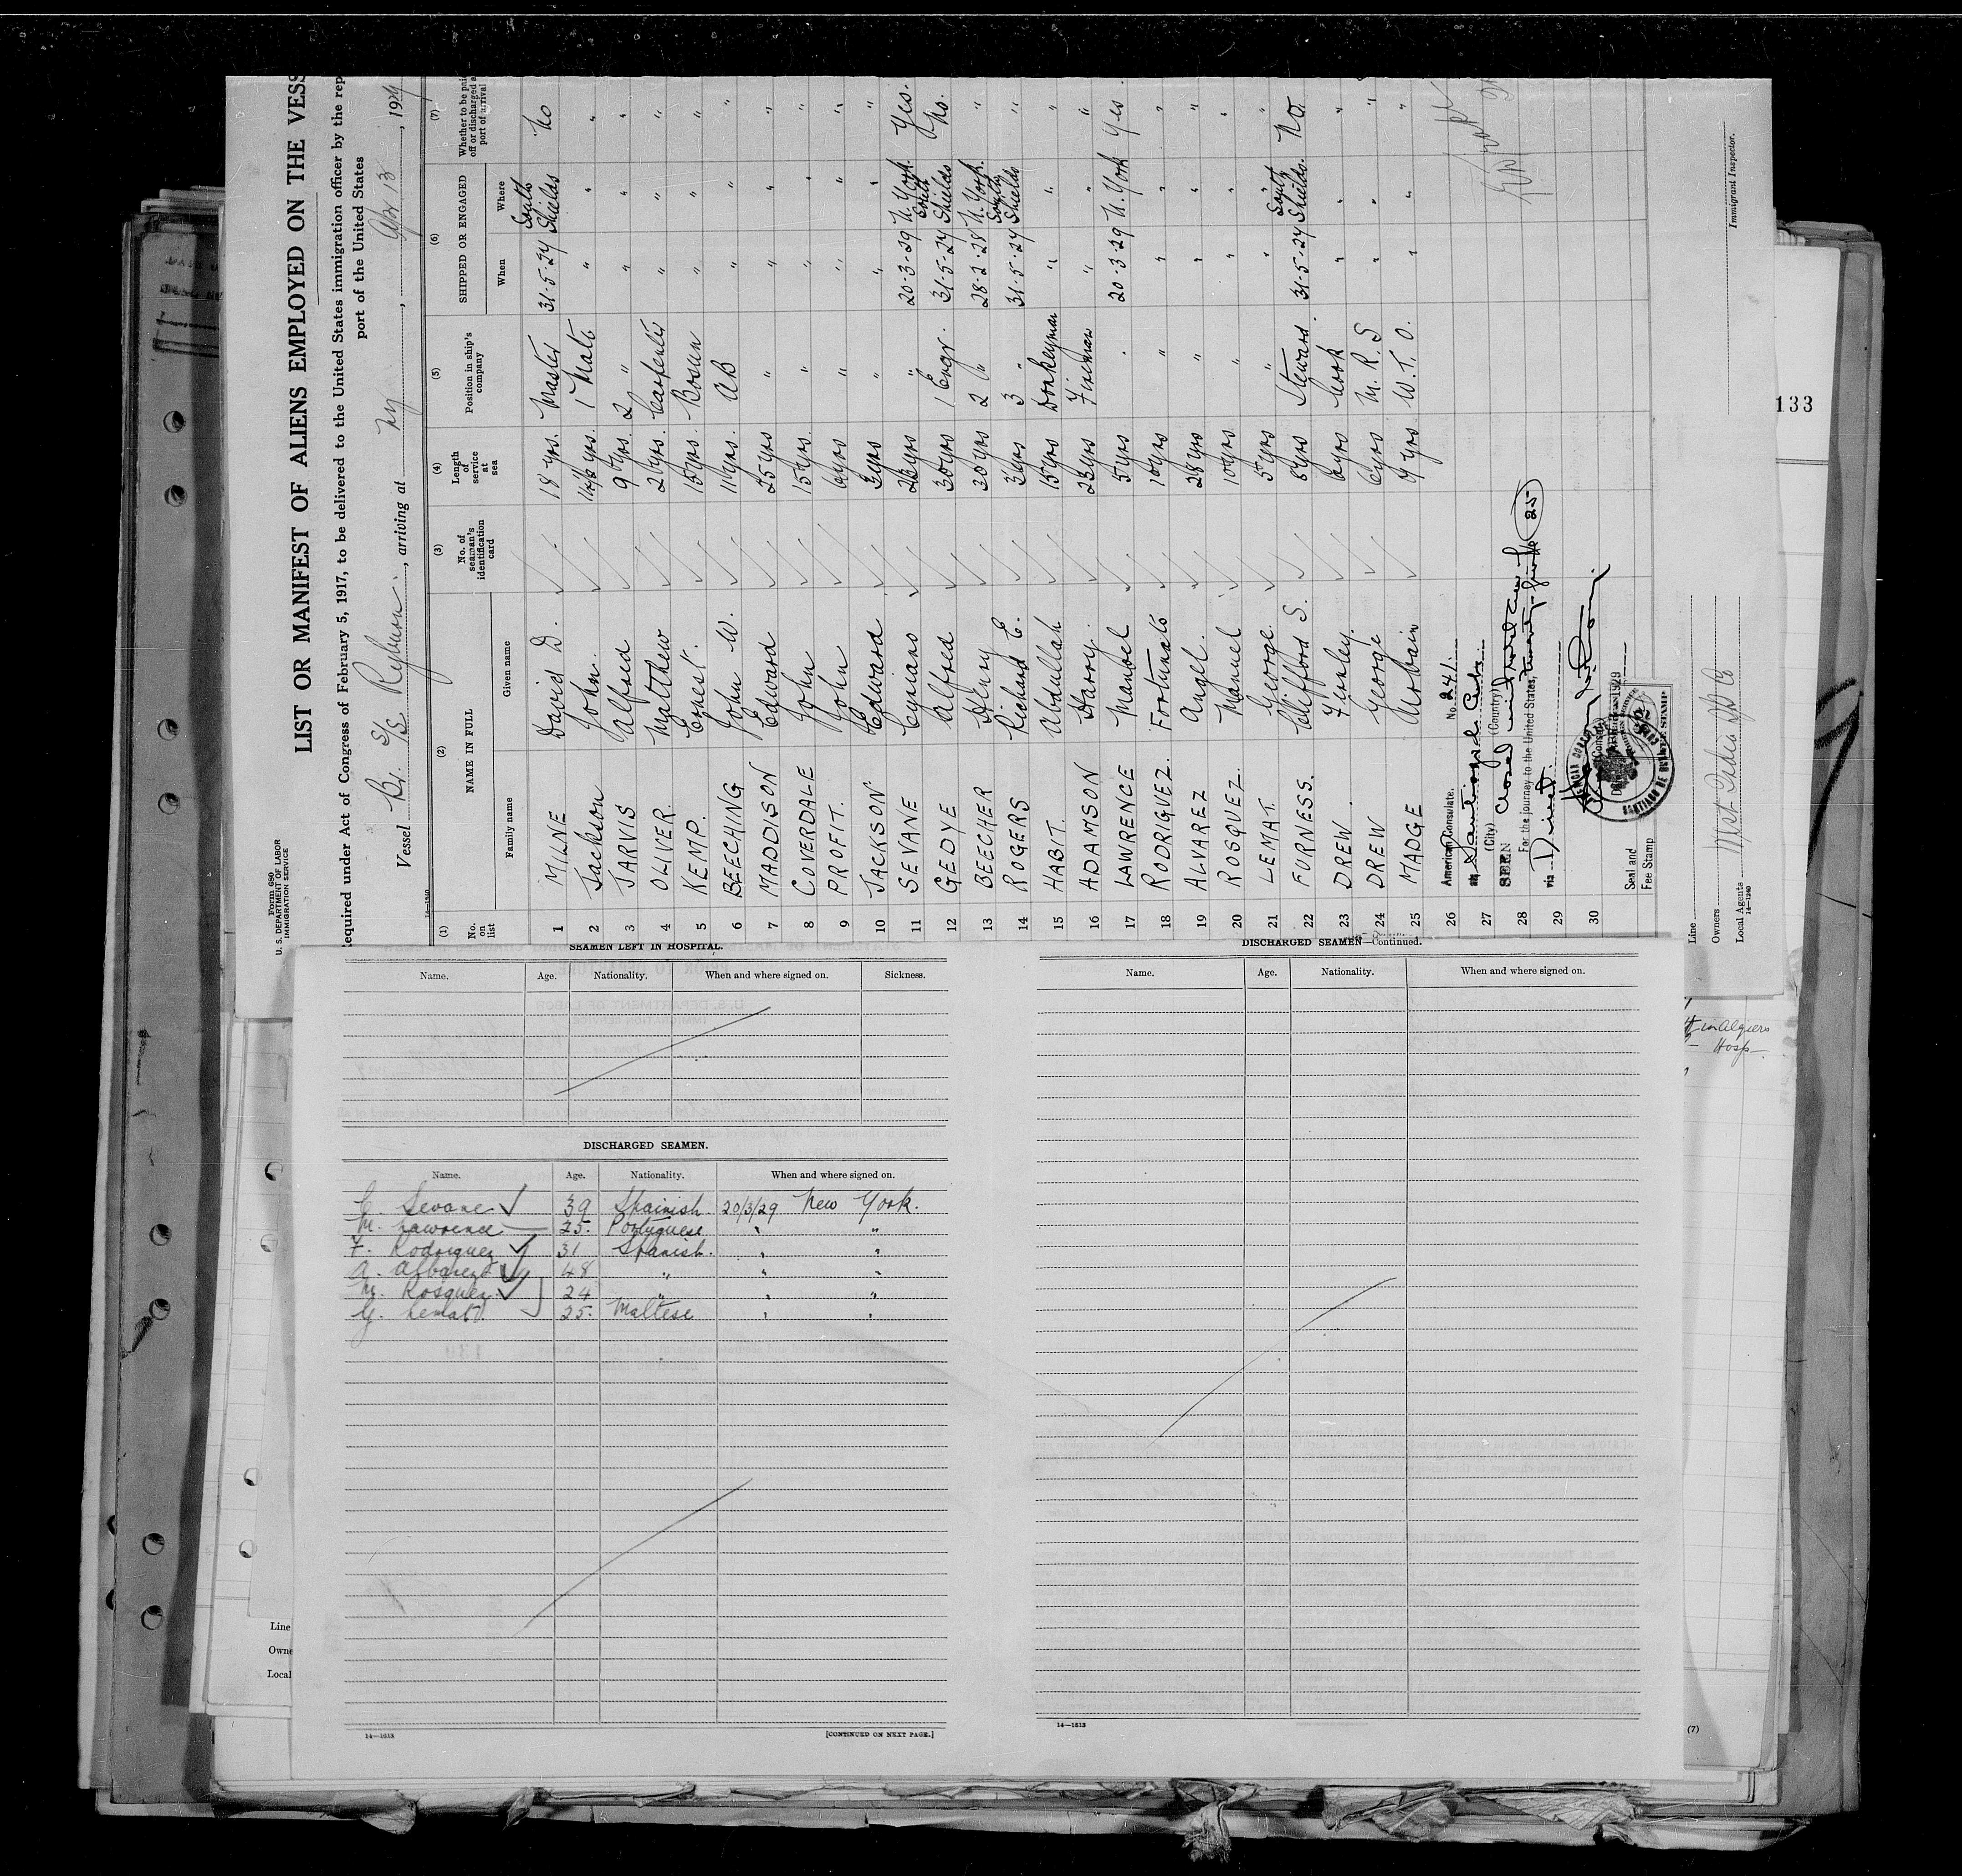 Form 680
U. S. DEPARTMENT OF LABOR
IMMIGRATION SERVICE
LIST OR MANIFEST OF ALIENS EMPLOYED ON THE VESS
equired under Act of Congress of February 5, 1917, to be delivered to the United States immigration officer by the rep
port of the United States
Vessel Br. S/S Reyburn, arriving at Ny, Apr 13, 1929
14-1240
(1) (2) (3) (4) (5) (6) (7)
No. on list NAME IN FULL Family name Given name No. of seaman's identification card Length of service at sea Position in ship's company SHIPPED OR ENGAGED When Where Whether to be paid off or discharged at port of arrival
1 MILNE David D. ✓ 18 yrs. Master 31-5-24 South Shields No
2 Jackson John. ✓ yrs. 1 Mate " " "
3 JARVIS Alfred ✓ 9 yrs. 2 " " " "
4 OLIVER. Matthew ✓ yrs. Carpenter " " "
5 KEMP. Ernest. ✓ 15 yrs. Bosun " " "
6 BEECHING John W. ✓ 11 yrs. AB " " "
7 MADDISON Edward ✓ 25 yrs " " " "
8 COVERDALE John ✓ 15 yrs. " " " "
9 PROFIT. John ✓ 6 yrs " " " "
10 JACKSON. Edward ✓ 3 yrs " " " "
11 SEVANE Cypriano ✓ yrs " 20-3-29 N. York. Yes.
12 GEDYE Alfred ✓ 30 yrs 1 Engr. 31-5-24 South Shields No.
13 BEECHER Henry ✓ 30 yrs 2 " 28-2-28 N. York. "
14 ROGERS Richard E. ✓ 3 yrs 3 " 31-5-24 South Shields "
15 HABIT. Abdullah ✓ 15 yrs Donkeyman " " "
16 ADAMSON Harry. ✓ 23 yrs Fireman " " "
17 LAWRENCE Manoel ✓ 5 yrs " 20-3-29 N. York Yes.
18 RODRIGUEZ. Fortunato ✓ 10 yrs " " " "
19 ALVAREZ Angel. ✓ 28 yrs " " " "
20 ROSQUEZ. Manuel ✓ 10 yrs. " " " "
21 LEMAT. George. ✓ 5 yrs " " "
22 FURNESS. Clifford S. ✓ 8 yrs Steward. 31-5-24 South Shields. No.
23 DREW. ✓ 6 yrs Cook " " "
24 DREW George ✓ 6 yrs M. R. S " " "
25 MADGE ✓ yrs W. T. O. " " "
26 American Consulate. No. 241.
at Santiago de Cuba
27 (City) (Country)
SEEN
28 For the journey to the United States, 25
29 via Direct.
30
American Consul
SANTIAGO DE CUBA
FEE STAMP
Seal and
Fee Stamp
Line
Owners
Local Agents West Indies
14-1240
Immigrant Inspector.
133
in Algiers
Hosp
SEAMEN LEFT IN HOSPITAL.
Name. Age. Nationality. When and where signed on. Sickness.
DISCHARGED SEAMEN.
Name. Age. Nationality. When and where signed on.
C. Sevane ✓ 39 Spainish. 20/3/29 New York.
M. Lawrence 25. Portuguese " "
F. Rodriguez ✓ 31 Spanish. " "
A. Albarez ✓ 48 " " "
M. Rosquez ✓ 24 " " "
G. Lemat. 25. Maltese " "
14-1613 [CONTINUED ON NEXT PAGE.]
DISCHARGED SEAMEN—Continued.
Name. Age. Nationality. When and where signed on.
14-1613
Line
Owne
Local
(7)